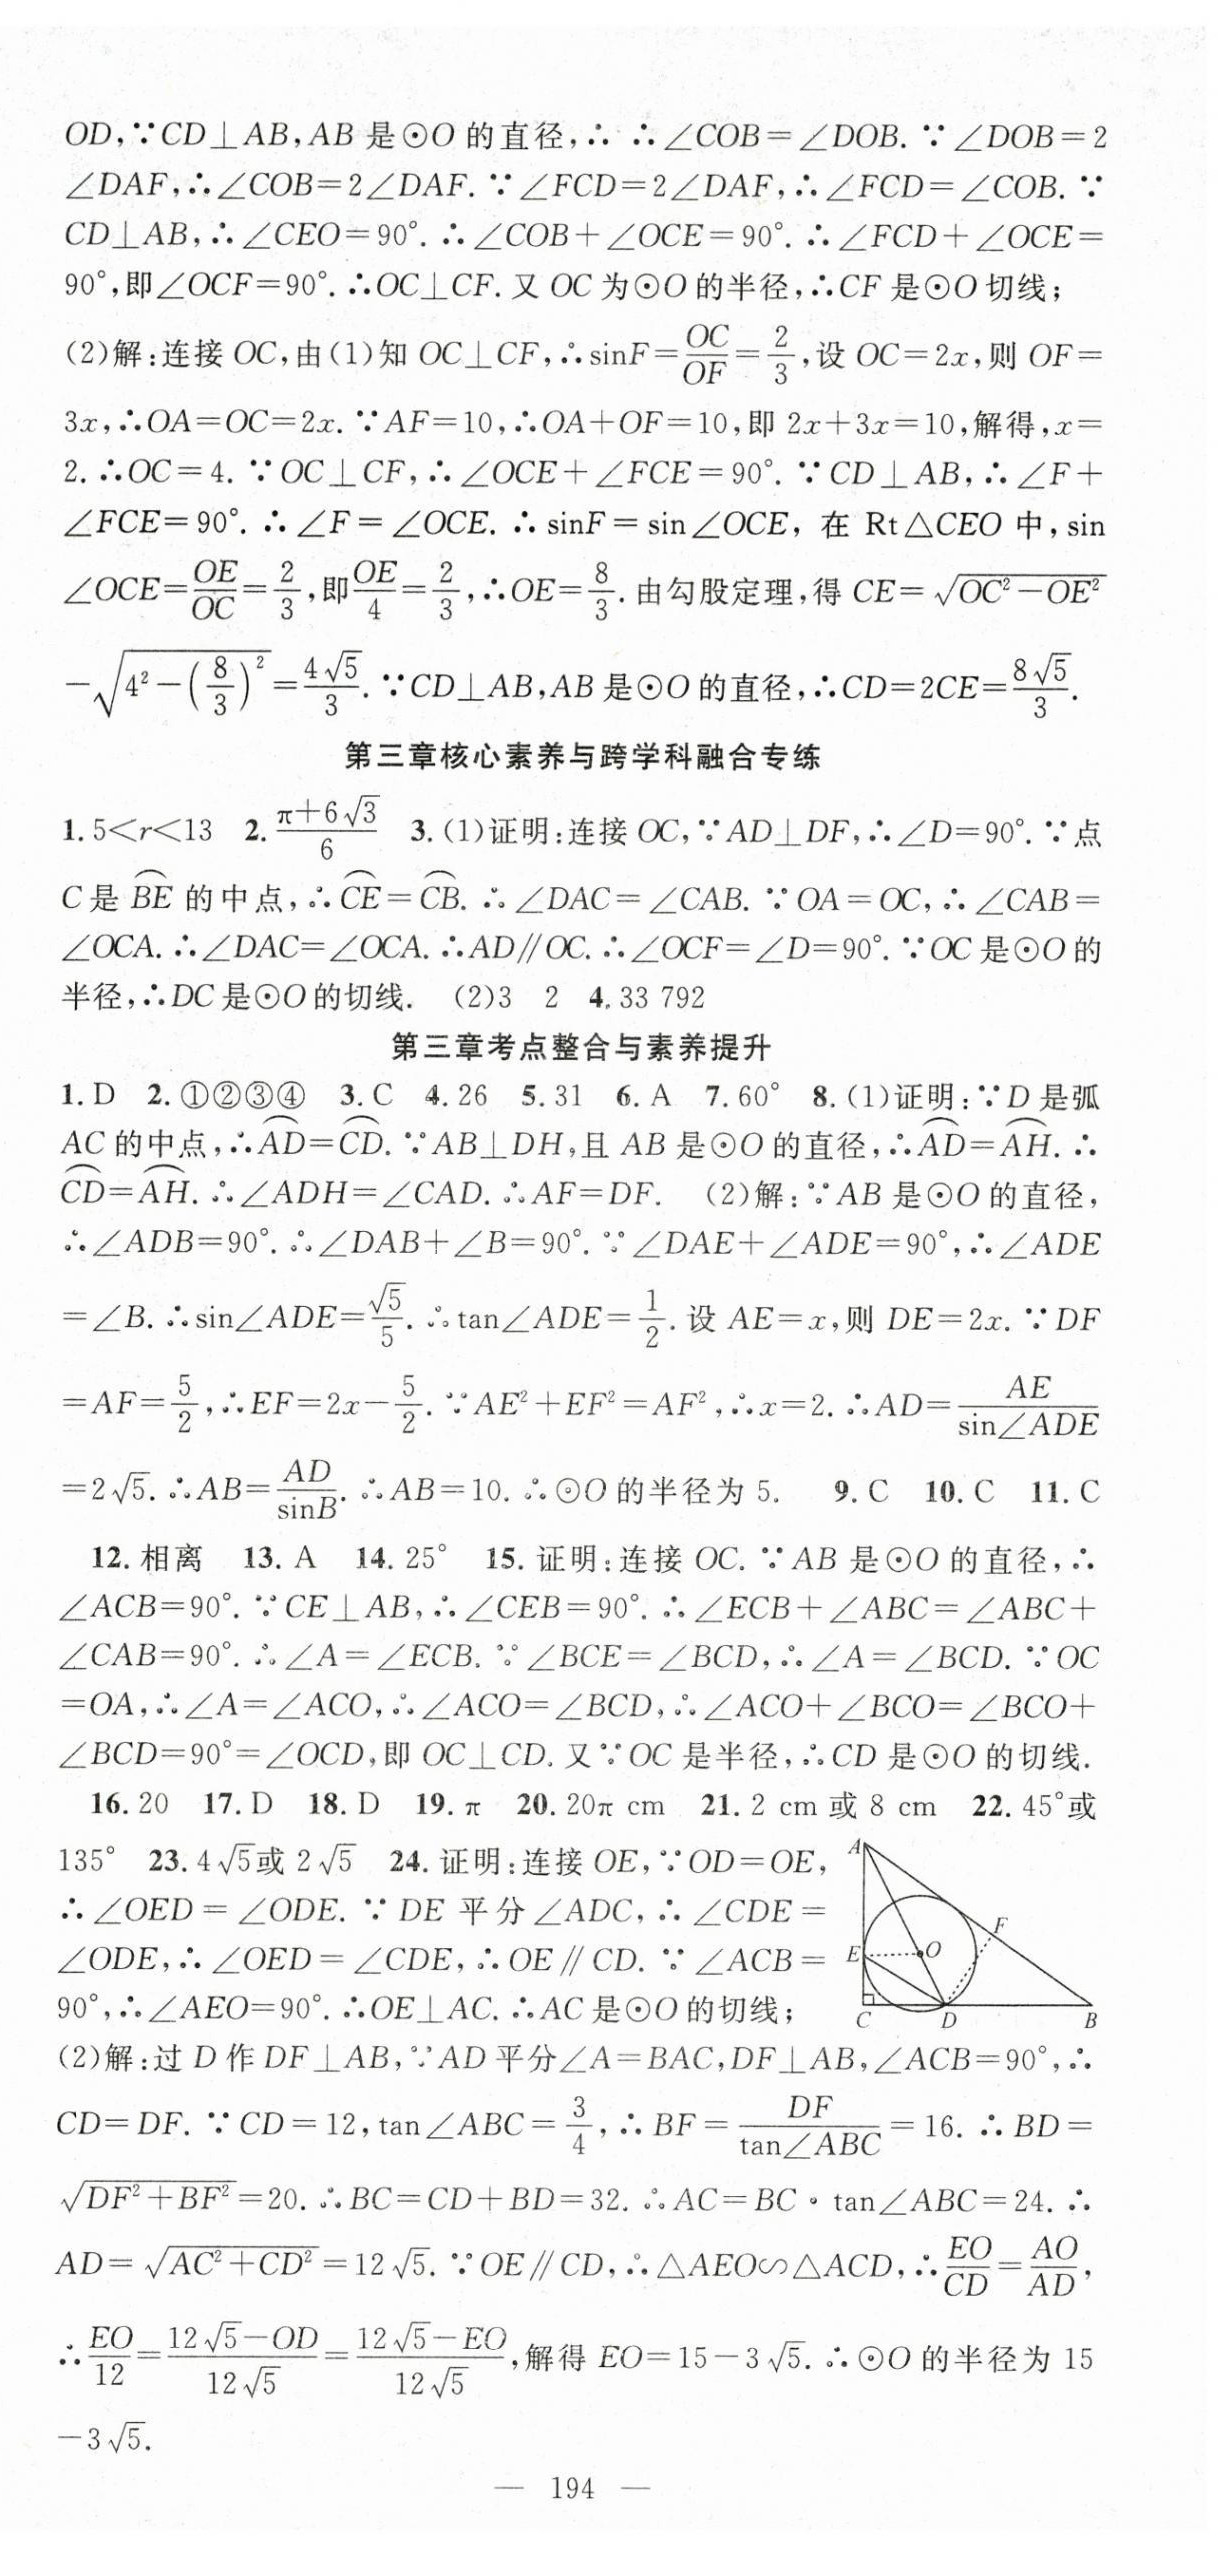 OD,∵CD⊥AB,AB 是⊙O 的直径,∴ ∴∠COB=∠DOB. ∵∠DOB=2
∠DAF,∴∠COB=2∠DAF. ∵∠FCD=2∠DAF,∴∠FCD=∠COB. ∵
CD⊥AB,∴∠CEO=90°. ∴∠COB+∠OCE=90°. ∴∠FCD+∠OCE=
90°,即∠OCF=90°. ∴OC⊥CF. 又 OC 为⊙O 的半径,∴CF 是⊙O 切线;
(2)解:连接 OC,由(1)知 OC⊥CF,∴sinF=OC/OF=2/3,设 OC=2x,则 OF=
3x,∴OA=OC=2x. ∵AF=10,∴OA+OF=10,即 2x+3x=10,解得,x=
2. ∴OC=4. ∵OC⊥CF,∴∠OCE+∠FCE=90°. ∵CD⊥AB,∴∠F+
∠FCE=90°. ∴∠F=∠OCE. ∴sinF=sin∠OCE, 在 Rt△CEO 中,sin
∠OCE=OE/OC=2/3,即OE/4=2/3,∴OE=8/3. 由勾股定理,得 CE=√(OC²-OE²)
-√(4²-(8/3)²)=4√5/3. ∵CD⊥AB,AB 是⊙O 的直径,∴CD=2CE=8√5/3.
第三章核心素养与跨学科融合专练
1. 5<r<13 2. (π+6√3)/6 3. (1)证明:连接 OC,∵AD⊥DF,∴∠D=90°. ∵点
C 是 B͡E 的中点,∴C͡E=C͡B. ∴∠DAC=∠CAB. ∵OA=OC,∴∠CAB=
∠OCA. ∴∠DAC=∠OCA. ∴AD∥OC. ∴∠OCF=∠D=90°. ∵OC 是⊙O 的
半径,∴DC 是⊙O 的切线. (2)3 2 4. 33 792
第三章考点整合与素养提升
1. D 2. ①②③④ 3. C 4. 26 5. 31 6. A 7. 60° 8. (1)证明:∵D 是弧
AC 的中点,∴A͡D=C͡D. ∵AB⊥DH,且 AB 是⊙O 的直径,∴A͡D=A͡H. ∴
C͡D=A͡H. ∴∠ADH=∠CAD. ∴AF=DF. (2)解:∵AB 是⊙O 的直径,
∴∠ADB=90°. ∴∠DAB+∠B=90°. ∵∠DAE+∠ADE=90°,∴∠ADE
=∠B. ∴sin∠ADE=√5/5. ∴tan∠ADE=1/2. 设 AE=x,则 DE=2x. ∵DF
=AF=5/2,∴EF=2x-5/2. ∵AE²+EF²=AF²,∴x=2. ∴AD=AE/sin∠ADE
=2√5. ∴AB=AD/sinB. ∴AB=10. ∴⊙O 的半径为 5. 9. C 10. C 11. C
12. 相离 13. A 14. 25° 15. 证明:连接 OC. ∵AB 是⊙O 的直径,∴
∠ACB=90°. ∵CE⊥AB,∴∠CEB=90°. ∴∠ECB+∠ABC=∠ABC+
∠CAB=90°. ∴∠A=∠ECB. ∵∠BCE=∠BCD,∴∠A=∠BCD. ∵OC
=OA,∴∠A=∠ACO,∴∠ACO=∠BCD,∴∠ACO+∠BCO=∠BCO+
∠BCD=90°=∠OCD,即 OC⊥CD. 又∵OC 是半径,∴CD 是⊙O 的切线.
16. 20 17. D 18. D 19. π 20. 20π cm 21. 2 cm 或 8 cm 22. 45°或
135° 23. 4√5或 2√5 24. 证明:连接 OE,∵OD=OE,
∴∠OED=∠ODE. ∵DE 平分∠ADC,∴∠CDE=
∠ODE,∴∠OED=∠CDE,∴OE∥CD. ∵∠ACB=
90°,∴∠AEO=90°. ∴OE⊥AC. ∴AC 是⊙O 的切线;
A
F
E
O
C
D
B
(2)解:过 D 作 DF⊥AB,∵AD 平分∠A=BAC,DF⊥AB,∠ACB=90°,∴
CD=DF. ∵CD=12,tan∠ABC=3/4,∴BF=DF/tan∠ABC=16. ∴BD=
√(DF²+BF²)=20. ∴BC=CD+BD=32. ∴AC=BC·tan∠ABC=24. ∴
AD=√(AC²+CD²)=12√5. ∵OE∥CD,∴△AEO∽△ACD,∴EO/CD=AO/AD,
∴EO/12=(12√5-OD)/12√5=(12√5-EO)/12√5,解得 EO=15-3√5. ∴⊙O 的半径为 15
-3√5.
— 194 —